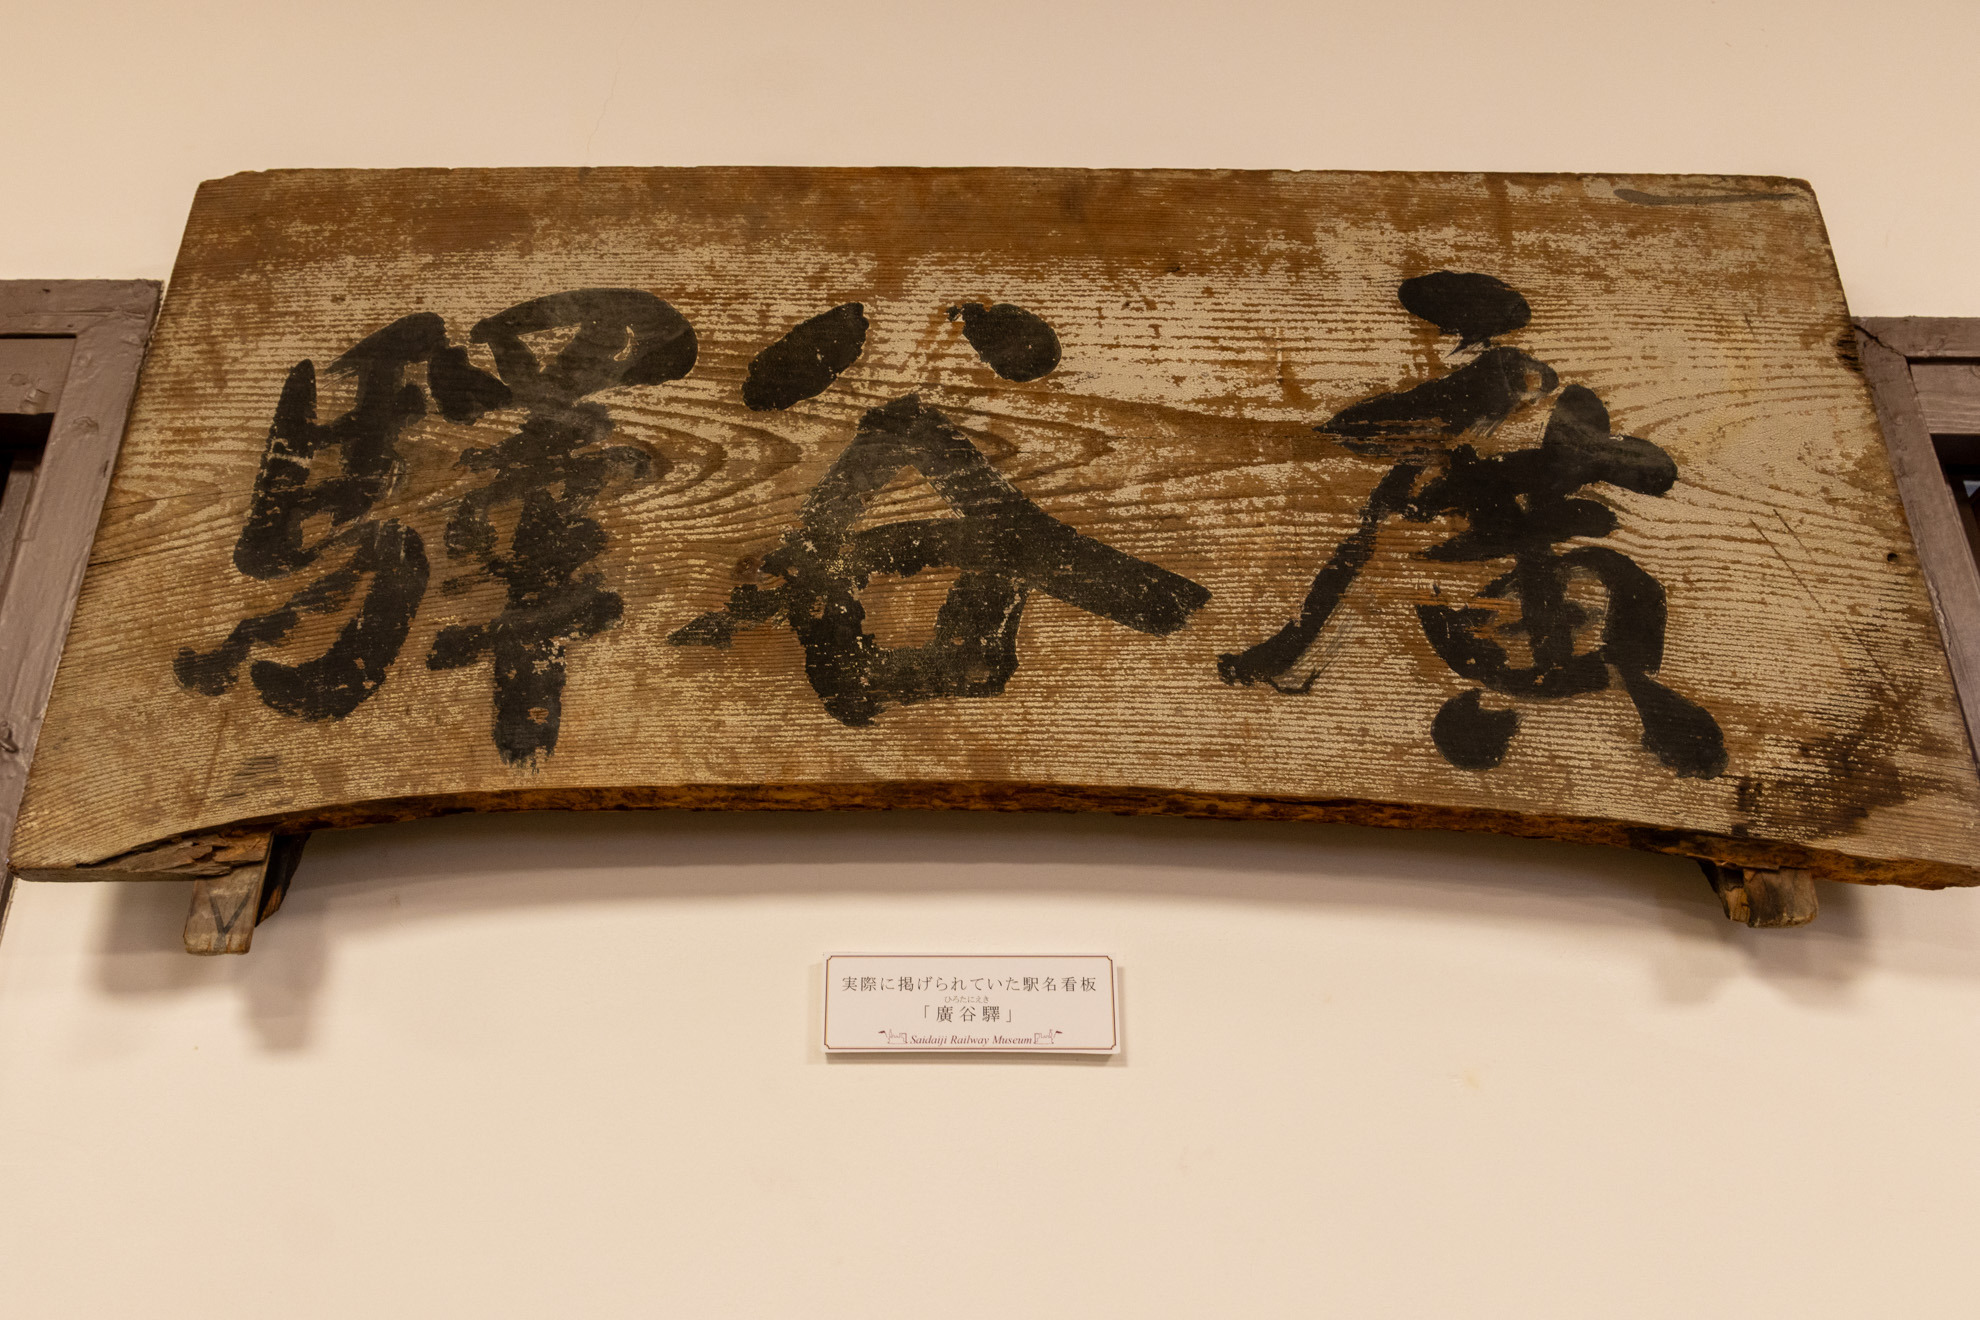 廣谷驛
実際に掲げられていた駅名看板
ひろたにえき
「廣谷驛」
Saidaiji Railway Museum